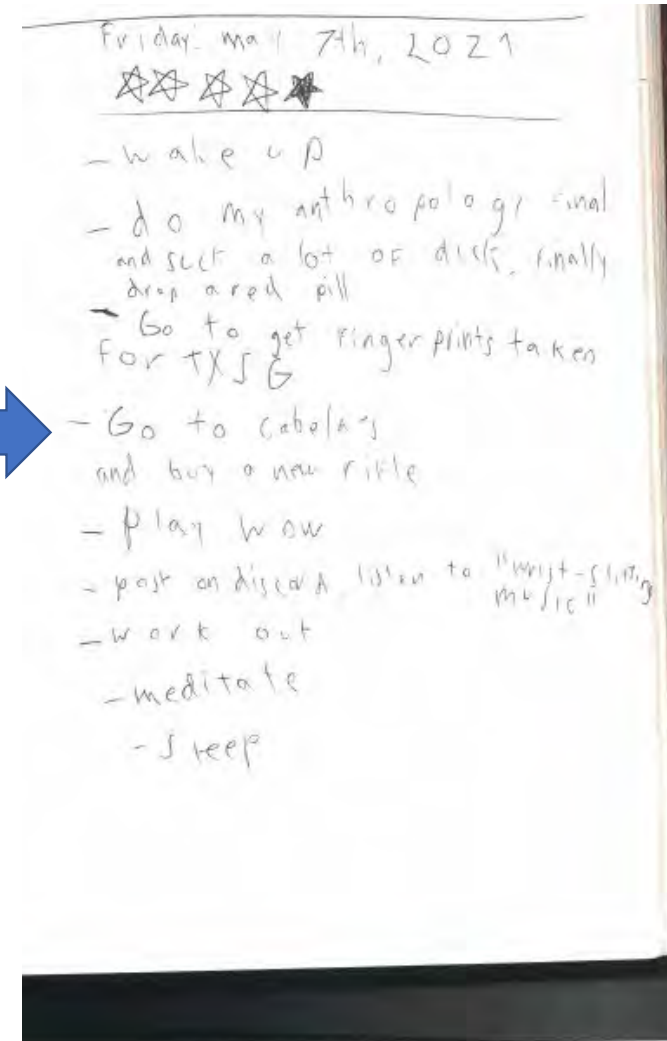 Friday: may 7th, 2021
- wake up
- do my anthropology final
and suck a lot of dick, finally
drop a red pill
- Go to get fingerprints taken
for TXSG
- Go to cabela's
and buy a new rifle
- play wow
- post on discord, listen to "wrist-slitting
music"
- work out
- meditate
- sleep